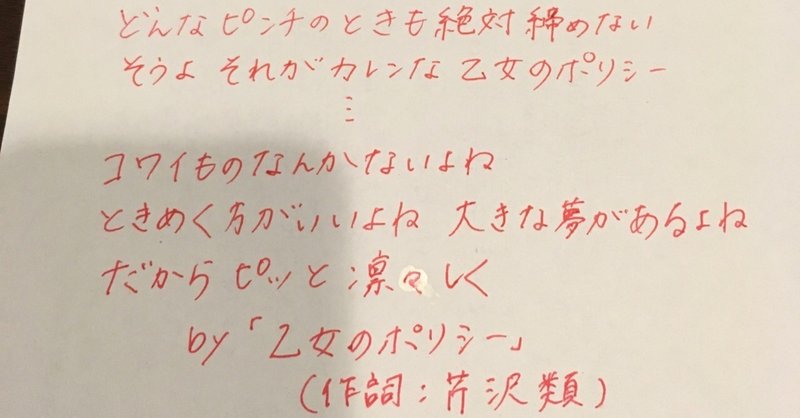 どんなピンチのときも絶対締めない
そうよ それがカレンな 乙女のポリシー
⋮
コワイものなんかないよね
ときめく方がいいよね 大きな夢があるよね
だからピッと凛々しく
by「乙女のポリシー」
(作詞:芹沢類)